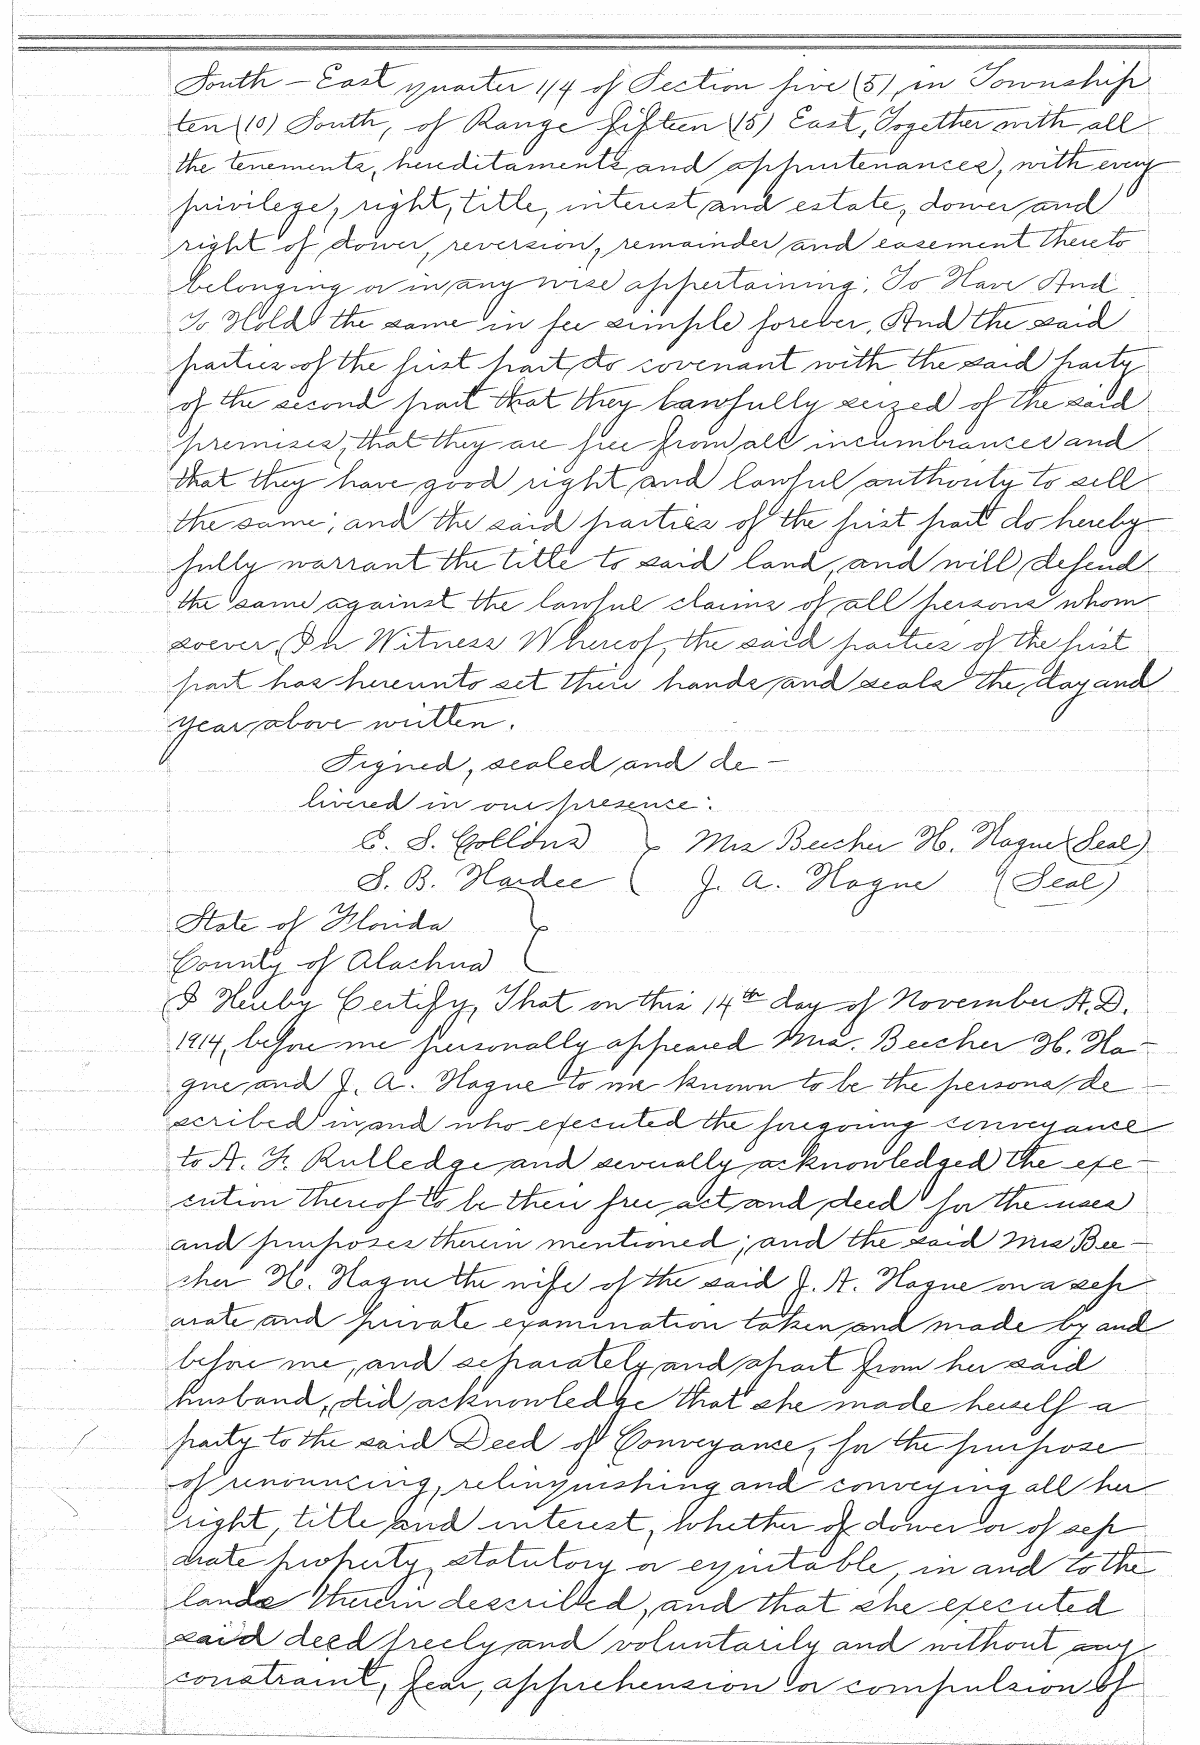 South - East quarter 1/4 of Section five (5), in Township
ten (10) South, of Range fifteen (15) East, Together with all
the tenements, hereditaments and appurtenances, with every
privilege, right, title, interest and estate, dower and
right of dower, reversion, remainder and easement thereto
belonging or in any wise appertaining: To Have And
To Hold the same in fee simple forever. And the said
parties of the first part do covenant with the said party
of the second part that they lawfully seized of the said
premises, that they are free from all incumbrances and
that they have good right and lawful authority to sell
the same; and the said parties of the first part do hereby
fully warrant the title to said land, and will defend
the same against the lawful claims of all persons whom
soever. In Witness Whereof, the said parties of the first
part has hereunto set their hands and seals the day and
year above written.
Signed, sealed and de -
livered in our presence:
E. S. Collins } Mrs Beecher H. Hague (Seal)
S. B. Hardee ( J. A. Hague (Seal)
State of Florida }
County of Alachua
I Hereby Certify, That on this 14th day of November A.D.
1914, before me personally appeared Mrs. Beecher H. Ha -
gue and J. A. Hague to me known to be the persons de -
scribed in and who executed the foregoing conveyance
to A. F. Rulledge and severally acknowledged the exe -
cution thereof to be their free act and deed for the uses
and purposes therein mentioned; and the said Mrs Bee -
cher H. Hague the wife of the said J. A. Hague on a sep
arate and private examination taken and made by and
before me, and separately and apart from her said
husband, did acknowledge that she made herself a
party to the said Deed of Conveyance, for the purpose
of renouncing, relinquishing and conveying all her
right, title and interest, whether of dower or of sep
arate property, statutory or equitable, in and to the
lands therein described, and that she executed
said deed freely and voluntarily and without any
constraint, fear, apprehension or compulsion of